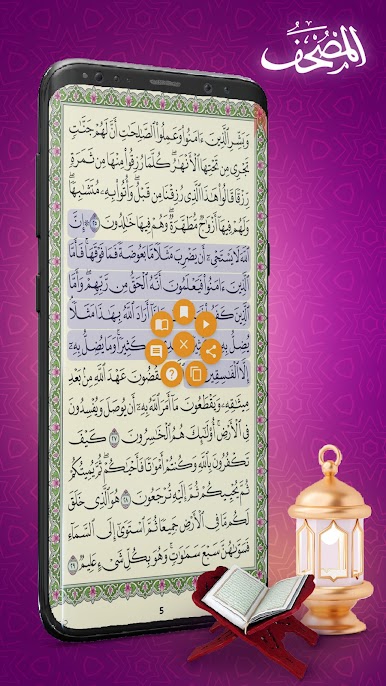 المصحف
وَبَشِّرِ ٱلَّذِينَ ءَامَنُوا۟ وَعَمِلُوا۟ ٱلصَّٰلِحَٰتِ أَنَّ لَهُمْ جَنَّٰتٍ
تَجْرِى مِن تَحْتِهَا ٱلْأَنْهَٰرُ ۖ كُلَّمَا رُزِقُوا۟ مِنْهَا مِن ثَمَرَةٍ
رِّزْقًا ۙ قَالُوا۟ هَٰذَا ٱلَّذِى رُزِقْنَا مِن قَبْلُ ۖ وَأُتُوا۟ بِهِۦ مُتَشَٰبِهًا ۖ
وَلَهُمْ فِيهَآ أَزْوَٰجٌ مُّطَهَّرَةٌ ۖ وَهُمْ فِيهَا خَٰلِدُونَ ٢٥ ۞ إِنَّ
ٱللَّهَ لَا يَسْتَحْىِۦٓ أَن يَضْرِبَ مَثَلًا مَّا بَعُوضَةً فَمَا فَوْقَهَا ۚ فَأَمَّا
ٱلَّذِينَ ءَامَنُوا۟ فَيَعْلَمُونَ أَنَّهُ ٱلْحَقُّ مِن رَّبِّهِمْ ۖ وَأَمَّا
ٱلَّذِينَ أَرَادَ ٱللَّهُ بِهَٰذَا مَثَلًا ۘ
يُضِلُّ بِهِۦ كَثِيرًا ۚ وَمَا يُضِلُّ بِهِۦٓ
إِلَّا ٱلْفَٰسِقِينَ عَهْدَ ٱللَّهِ مِنۢ بَعْدِ
مِيثَٰقِهِۦ وَيَقْطَعُونَ مَآ أَمَرَ ٱللَّهُ بِهِۦٓ أَن يُوصَلَ وَيُفْسِدُونَ
فِى ٱلْأَرْضِ ۚ أُو۟لَٰٓئِكَ هُمُ ٱلْخَٰسِرُونَ ٢٧ كَيْفَ
تَكْفُرُونَ بِٱللَّهِ وَكُنتُمْ أَمْوَٰتًا فَأَحْيَٰكُمْ ۖ ثُمَّ يُمِيتُكُمْ
ثُمَّ يُحْيِيكُمْ ثُمَّ إِلَيْهِ تُرْجَعُونَ ٢٨ هُوَ ٱلَّذِى خَلَقَ
لَكُم مَّا فِى ٱلْأَرْضِ جَمِيعًا ثُمَّ ٱسْتَوَىٰٓ إِلَى ٱلسَّمَآءِ
فَسَوَّىٰهُنَّ سَبْعَ سَمَٰوَٰتٍ ۚ وَهُوَ بِكُلِّ شَىْءٍ عَلِيمٌ ٢٩
5